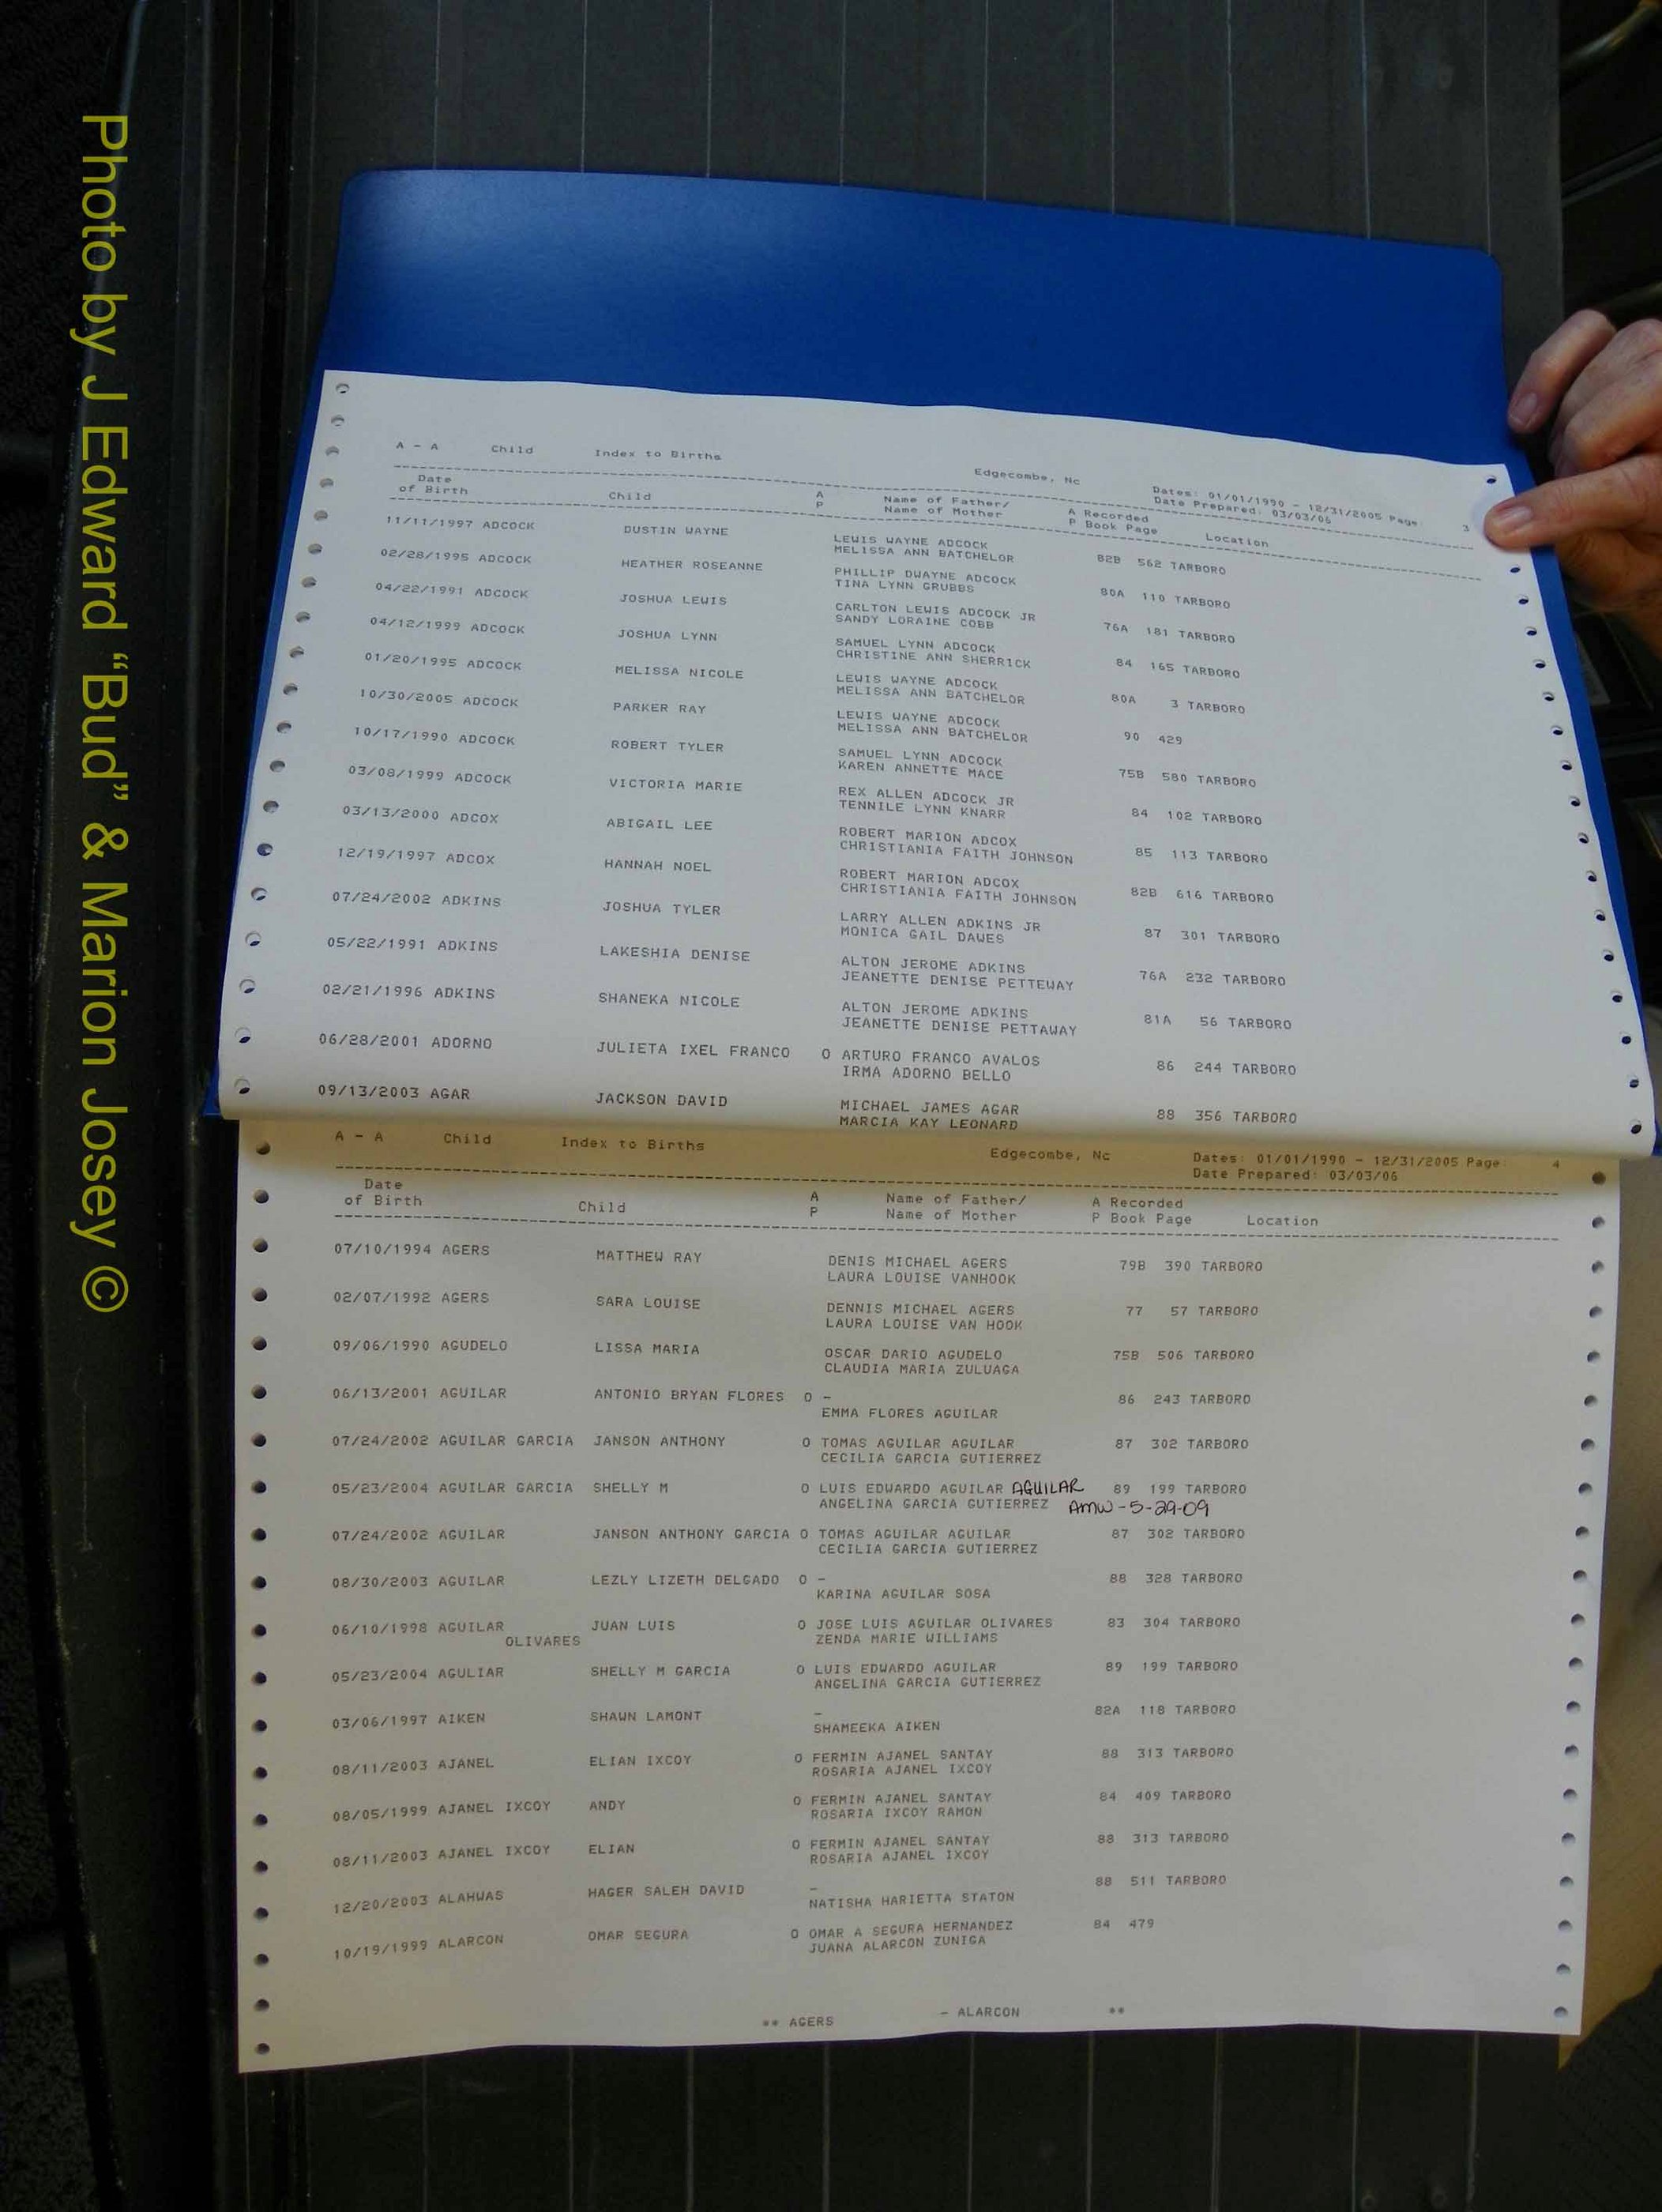 Photo by J Edward “Bud” & Marion Josey ©
A - A Child Index to Births Edgecombe, Nc Dates: 01/01/1990 - 12/31/2005 Page 3
Date Prepared: 03/03/06
Date Child A Name of Father/ A Recorded Location
of Birth P Name of Mother P Book Page
11/11/1997 ADCOCK DUSTIN WAYNE LEWIS WAYNE ADCOCK 82B 562 TARBORO
MELISSA ANN BATCHELOR
02/28/1995 ADCOCK HEATHER ROSEANNE PHILLIP DWAYNE ADCOCK 80A 110 TARBORO
TINA LYNN GRUBBS
04/22/1991 ADCOCK JOSHUA LEWIS CARLTON LEWIS ADCOCK JR 76A 181 TARBORO
SANDY LORAINE COBB
04/12/1999 ADCOCK JOSHUA LYNN SAMUEL LYNN ADCOCK 84 165 TARBORO
CHRISTINE ANN SHERRICK
01/20/1995 ADCOCK MELISSA NICOLE LEWIS WAYNE ADCOCK 80A 3 TARBORO
MELISSA ANN BATCHELOR
10/30/2005 ADCOCK PARKER RAY LEWIS WAYNE ADCOCK 90 429
MELISSA ANN BATCHELOR
10/17/1990 ADCOCK ROBERT TYLER SAMUEL LYNN ADCOCK 75B 580 TARBORO
KAREN ANNETTE MACE
03/08/1999 ADCOCK VICTORIA MARIE REX ALLEN ADCOCK JR 84 102 TARBORO
TENNILE LYNN KNARR
03/13/2000 ADCOX ABIGAIL LEE ROBERT MARION ADCOX 85 113 TARBORO
CHRISTIANIA FAITH JOHNSON
12/19/1997 ADCOX HANNAH NOEL ROBERT MARION ADCOX 82B 616 TARBORO
CHRISTIANIA FAITH JOHNSON
07/24/2002 ADKINS JOSHUA TYLER LARRY ALLEN ADKINS JR 87 301 TARBORO
MONICA GAIL DAWES
05/22/1991 ADKINS LAKESHIA DENISE ALTON JEROME ADKINS 76A 232 TARBORO
JEANETTE DENISE PETTEWAY
02/21/1996 ADKINS SHANEKA NICOLE ALTON JEROME ADKINS 81A 56 TARBORO
JEANETTE DENISE PETTAWAY
06/28/2001 ADORNO JULIETA IXEL FRANCO O ARTURO FRANCO AVALOS 86 244 TARBORO
IRMA ADORNO BELLO
09/13/2003 AGAR JACKSON DAVID MICHAEL JAMES AGAR 88 356 TARBORO
MARCIA KAY LEONARD
A - A Child Index to Births Edgecombe, Nc Dates: 01/01/1990 - 12/31/2005 Page: 4
Date Prepared: 03/03/06
Date Child A Name of Father/ A Recorded
of Birth P Name of Mother P Book Page Location
07/10/1994 AGERS MATTHEW RAY DENIS MICHAEL AGERS 79B 390 TARBORO
LAURA LOUISE VANHOOK
02/07/1992 AGERS SARA LOUISE DENNIS MICHAEL AGERS 77 57 TARBORO
LAURA LOUISE VAN HOOK
09/06/1990 AGUDELO LISSA MARIA OSCAR DARIO AGUDELO 75B 506 TARBORO
CLAUDIA MARIA ZULUAGA
06/13/2001 AGUILAR ANTONIO BRYAN FLORES O - 86 243 TARBORO
EMMA FLORES AGUILAR
07/24/2002 AGUILAR GARCIA JANSON ANTHONY O TOMAS AGUILAR AGUILAR 87 302 TARBORO
CECILIA GARCIA GUTIERREZ
05/23/2004 AGUILAR GARCIA SHELLY M O LUIS EDWARDO AGUILAR AGUILAR 89 199 TARBORO
ANGELINA GARCIA GUTIERREZ AMW-5-29-09
07/24/2002 AGUILAR JANSON ANTHONY GARCIA O TOMAS AGUILAR AGUILAR 87 302 TARBORO
CECILIA GARCIA GUTIERREZ
08/30/2003 AGUILAR LEZLY LIZETH DELGADO O - 88 328 TARBORO
KARINA AGUILAR SOSA
06/10/1998 AGUILAR JUAN LUIS O JOSE LUIS AGUILAR OLIVARES 83 304 TARBORO
OLIVARES ZENDA MARIE WILLIAMS
05/23/2004 AGULIAR SHELLY M GARCIA O LUIS EDWARDO AGUILAR 89 199 TARBORO
ANGELINA GARCIA GUTIERREZ
03/06/1997 AIKEN SHAWN LAMONT - 82A 118 TARBORO
SHAMEEKA AIKEN
08/11/2003 AJANEL ELIAN IXCOY O FERMIN AJANEL SANTAY 88 313 TARBORO
ROSARIA AJANEL IXCOY
08/05/1999 AJANEL IXCOY ANDY O FERMIN AJANEL SANTAY 84 409 TARBORO
ROSARIA IXCOY RAMON
08/11/2003 AJANEL IXCOY ELIAN O FERMIN AJANEL SANTAY 88 313 TARBORO
ROSARIA AJANEL IXCOY
12/20/2003 ALAHWAS HAGER SALEH DAVID - 88 511 TARBORO
NATISHA HARIETTA STATON
10/19/1999 ALARCON OMAR SEGURA O OMAR A SEGURA HERNANDEZ 84 479
JUANA ALARCON ZUNIGA
** AGERS - ALARCON **